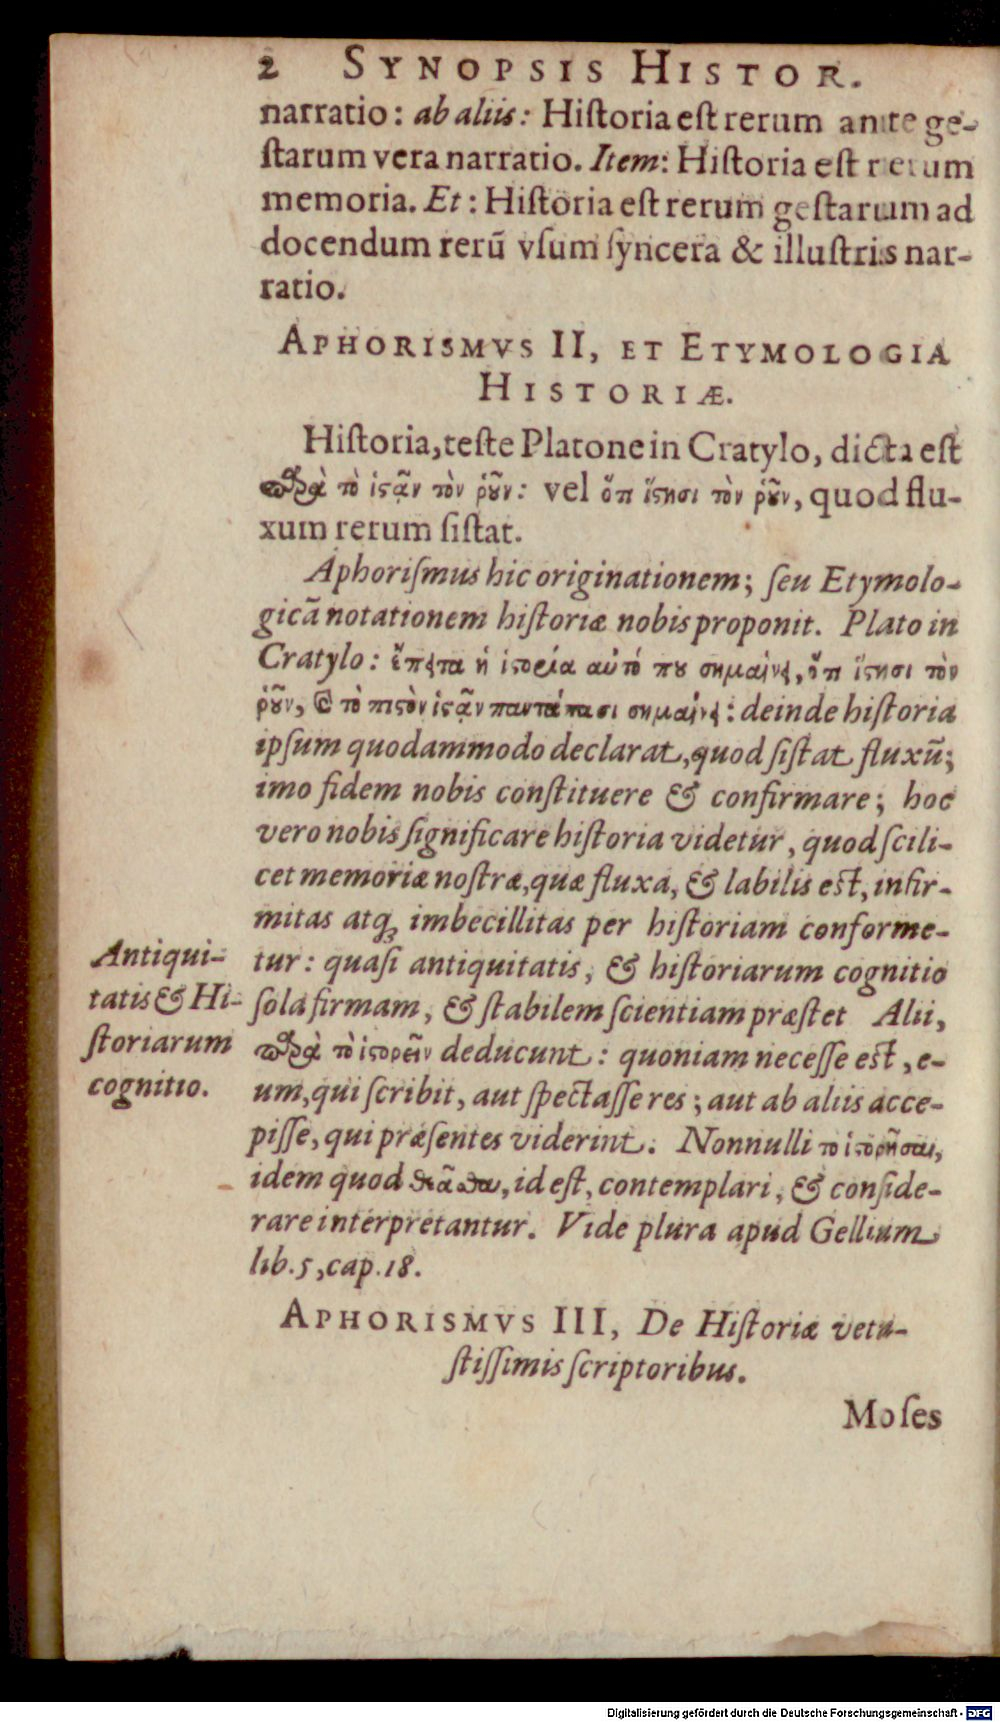 2 SYNOPSIS HISTOR.
narratio: ab aliis: Hiſtoria eſt rerum ante ge-
ſtarum vera narratio. Item: Hiſtoria eſt rerum
memoria. Et: Hiſtoria eſt rerum geſtarum ad
docendum rerū vſum ſyncera & illuſtris nar-
ratio.
APHORISMVS II, ET ETYMOLOGIA
HISTORIÆ.
Hiſtoria, teſte Platone in Cratylo, dicta eſt
παρὰ τὸ ἱςᾷν τὸν ῥοῦν: vel ὅτι ἵςησι τὸν ῥοῦν, quod flu-
xum rerum ſiſtat.
Aphoriſmus hic originationem; ſeu Etymolo-
gicā notationem hiſtoriæ nobis proponit. Plato in
Cratylo: ἔπειτα ἡ ἱςορία αὐτό που σημαίνει, ὅτι ἵςησι τὸν
ῥοῦν, καὶ τὸ πιςὸν ἱςᾷν παντάπασι σημαίνει: deinde hiſtoria
ipſum quodammodo declarat, quod ſiſtat fluxū;
imo fidem nobis conſtituere & confirmare; hoc
vero nobis ſignificare hiſtoria videtur, quod ſcili-
cet memoriæ noſtræ, quæ fluxa, & labilis eſt, infir-
mitas atq; imbecillitas per hiſtoriam conforme-
tur: quaſi antiquitatis, & hiſtoriarum cognitio
ſola firmam, & ſtabilem ſcientiam præſtet Alii,
παρὰ τὸ ἱςορεῖν deducunt: quoniam neceſſe eſt, e-
um, qui ſcribit, aut ſpectaſſe res; aut ab aliis acce-
piſſe, qui præſentes viderint. Nonnulli τὸ ἱςορῆσαι,
idem quod θεᾶσθαι, id eſt, contemplari, & conſide-
rare interpretantur. Vide plura apud Gellium
lib. 5, cap. 18.
Antiqui-
tatis & Hi-
ſtoriarum
cognitio.
APHORISMVS III, De Hiſtoriæ vetu-
ſtiſſimis ſcriptoribus.
Moſes
Digitalisierung gefördert durch die Deutsche Forschungsgemeinschaft - DFG